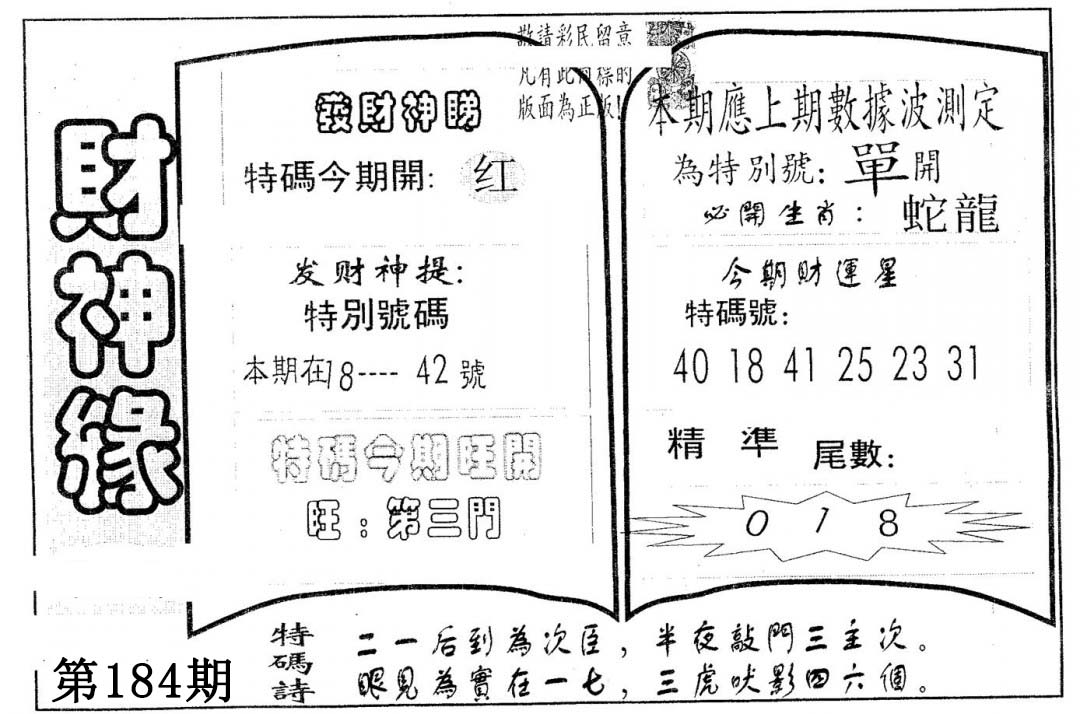 財神緣
敬請彩民留意
凡有此圖樣的
版面為正版!
發財神睇
特碼今期開:红
发财神提:
特別號碼
本期在18----42號
特碼今期旺開
旺:第三門
本期應上期數據波測定
為特別號:單開
必開生肖:蛇龍
今期財運星
特碼號:
40 18 41 25 23 31
精準尾數:
0 1 8
特碼詩
二一后到為次臣,半夜敲門三主次。
眼見為實在一七,三虎吠影四六個。
第184期